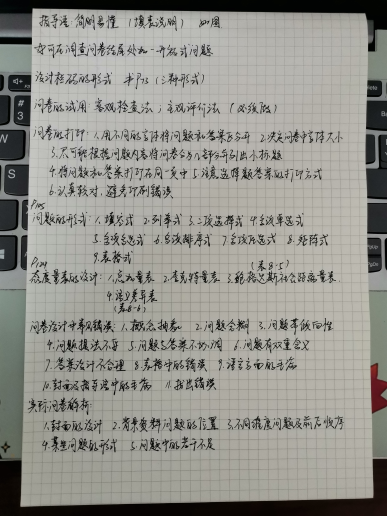 指导语:简明易懂(填表说明) 如图
如可在调查问卷结尾处加一开放式问题
设计编码的形式 *P173 (三种形式)
问卷的试用:客观检查法;主观评价法 (必须做)
问卷的打印:1.用不同的字体将问题和答案区分开 2.决定问卷中字体大小
3.尽可能根据问题内容将问卷分为几部分并列出小标题
4.将问题和答案打印在同一页中 5.注意选择题答案的打印方式
6.认真校对,避免印刷错误
问题的形式:1.填空式 2.列举式 3.二项选择式 4.多项单选式
5.多项多选式 6.多项排序式 7.多项限选式 8.矩阵式
9.表格式
(表8-5)
态度量表的设计:1.总加量表 2.李克特量表 3.鲍格达斯社会距离量表
4.语义差异表
(表8-6)
问卷设计中常见错误:1.概念抽象 2.问题含糊 3.问题带倾向性
4.问题提法不妥 5.问题与答案不协调 6.问题有双重含义
7.答案设计不合理 8.表格中的错误 9.语言方面的毛病
10.封面及指导语中的毛病 11.排出错误
实际问卷解析:
1.封面的设计 2.背景资料问题的位置 3.不同难度问题及前后顺序
4.某些问题的形式 5.问题中的若干不足